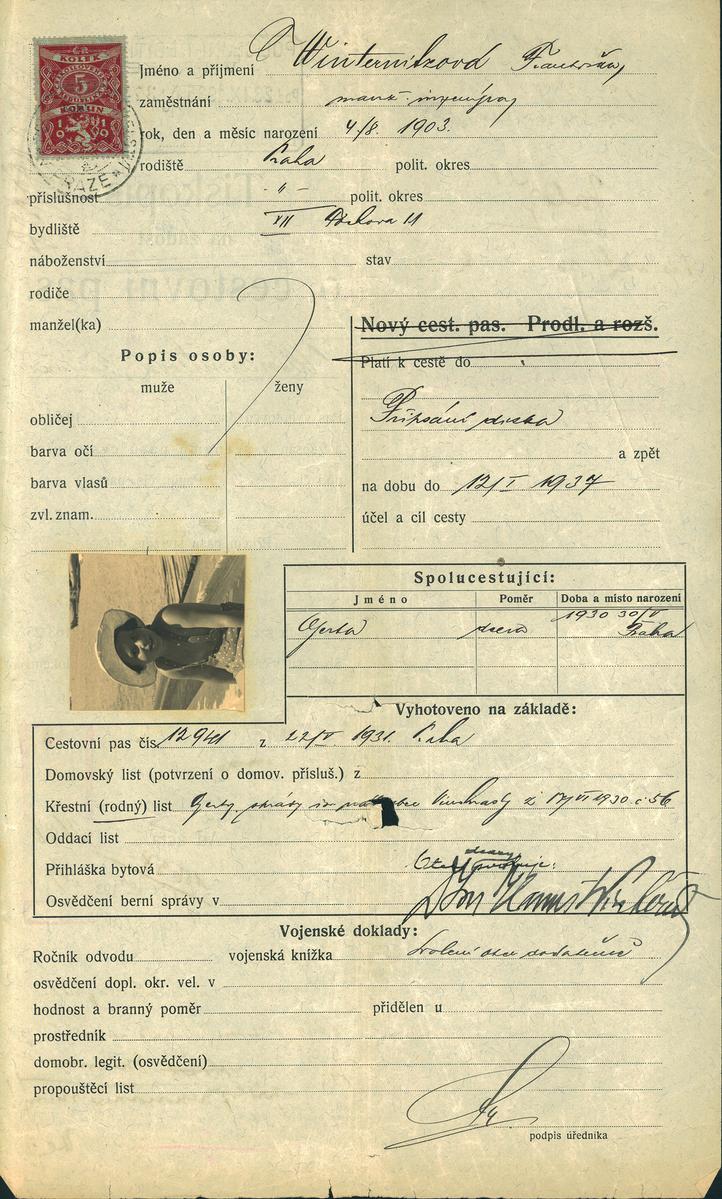 ČR
KOLEK
5
KORUN
1919
Jméno a příjmení Winternitzová Františka
zaměstnání manž. inženýra
rok, den a měsíc narození 4/8. 1903.
rodiště Praha polit. okres
příslušnost - " - polit. okres
bydliště XII 11
náboženství stav
rodiče
manžel(ka)
Nový cest. pas. Prodl. a rozš.
Popis osoby:
Platí k cestě do
muže ženy
obličej
Připsání dítka
barva očí
a zpět
barva vlasů
na dobu do 12/I 1937
zvl. znam.
účel a cíl cesty
Spolucestující:
Jméno Poměr Doba a místo narození
Gerta dcera 1930 30/V
Praha
Vyhotoveno na základě:
Cestovní pas čís. 12941 z 22/V 1931. Praha
Domovský list (potvrzení o domov. přísluš.) z
Křestní (rodný) list Gerty Vinohrady z 17/VI 1930 č 56
Oddací list
Přihláška bytová
Osvědčení berní správy v
Vojenské doklady:
Ročník odvodu vojenská knížka Svolení otce dodatečně
osvědčení dopl. okr. vel. v
hodnost a branný poměr přidělen u
prostředník
domobr. legit. (osvědčení)
propouštěcí list
podpis úředníka